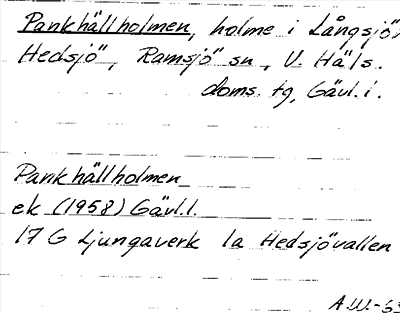 Pankhällholmen, holme i Långsjön
Hedsjö, Ramsjö sn, V. Häls.
doms. tg, Gävl. i.
Pankhällholmen
ek (1958) Gävl.l.
17 G Ljungaverk 1a Hedsjövallen
A.W.-